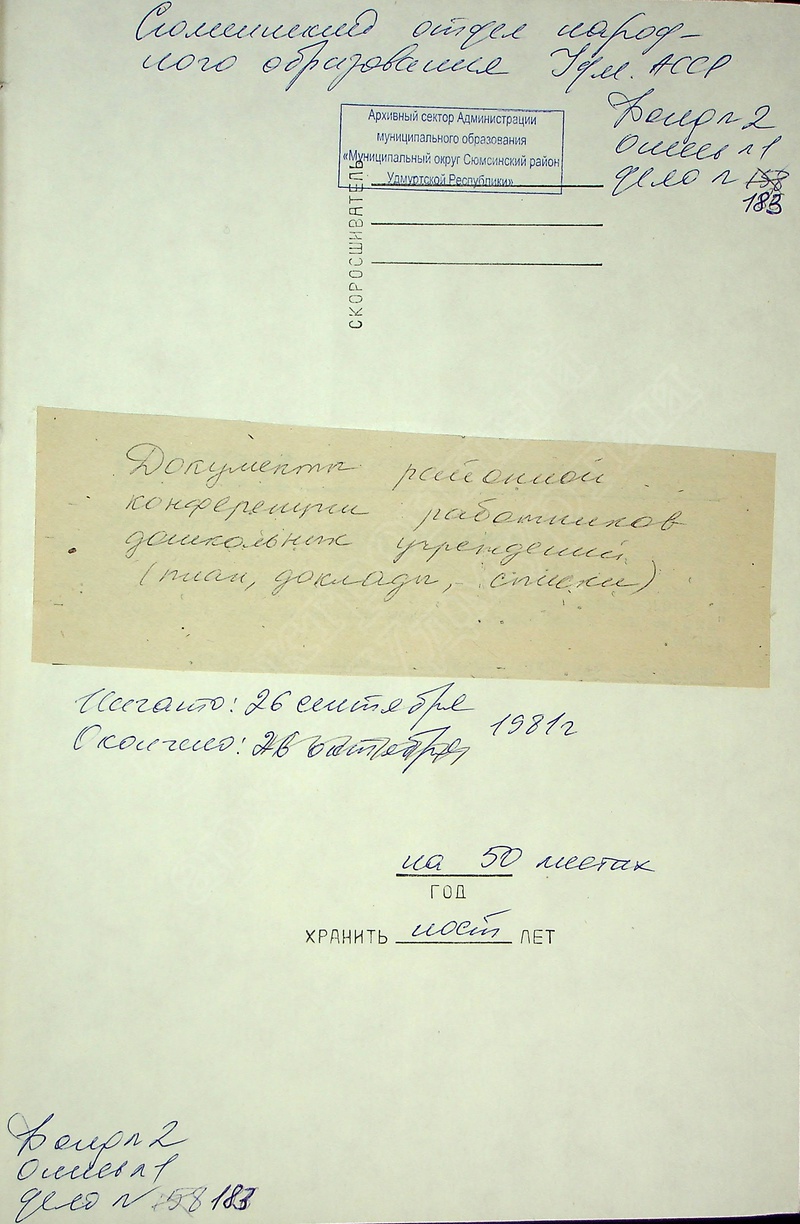 Сюмсинский отдел народ-
ного образования Удм. АССР
Архивный сектор Администрации
муниципального образования
«Муниципальный округ Сюмсинский район
Удмуртской Республики»
Фонд № 2
Опись № 1
дело № 158
183
СКОРОСШИВАТЕЛЬ
Документы районной
конференции работников
дошкольных учреждений
(план, доклады, списки)
Начато: 26 сентября
Окончено: 26 октября 1981г
на 50 листах
ГОД
ХРАНИТЬ пост ЛЕТ
Фонд № 2
Опись № 1
дело № 158 183